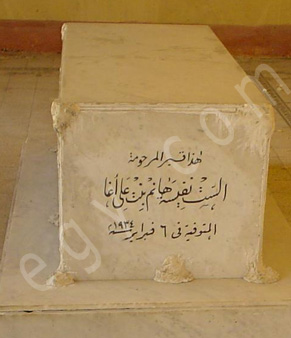 هذا قبر المرحومة
الست نفيسة هانم بنت على أغا
المتوفية فى ٦ فبراير سنة ١٩٣٤
egy.com